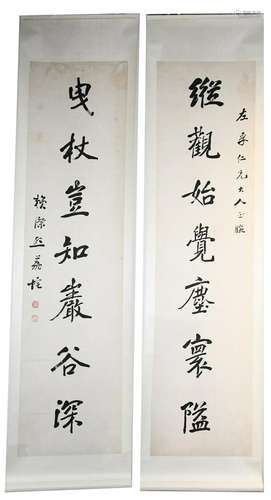 縱觀始覺塵寰隘
仁兄大人正腕
曳杖豈知巖谷深
賴際熙荔垞